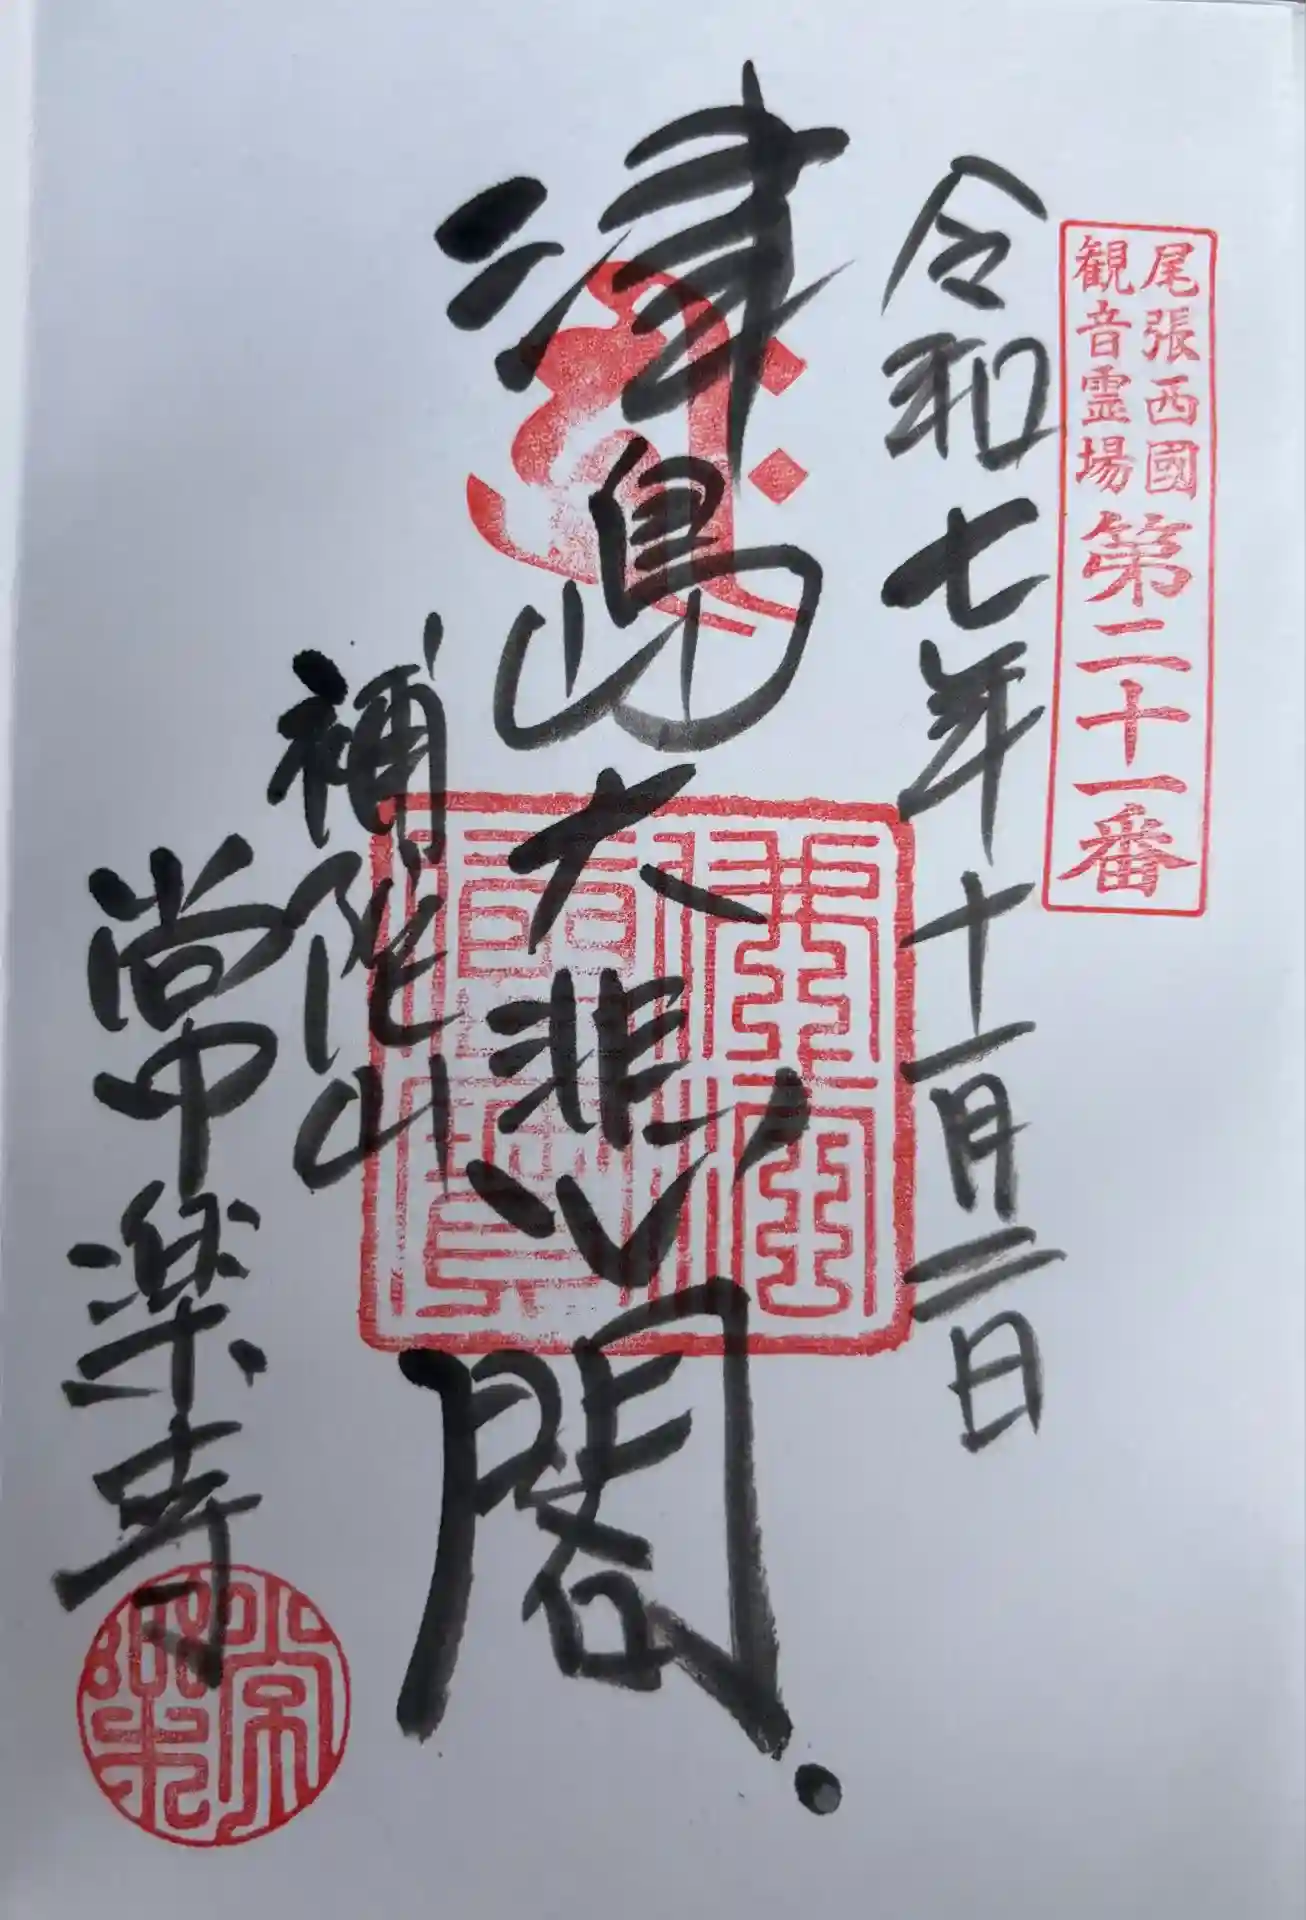 尾張西國
観音霊場
第二十一番
令和七年十一月二日
津島大悲閣
補陀山
常楽寺
常樂